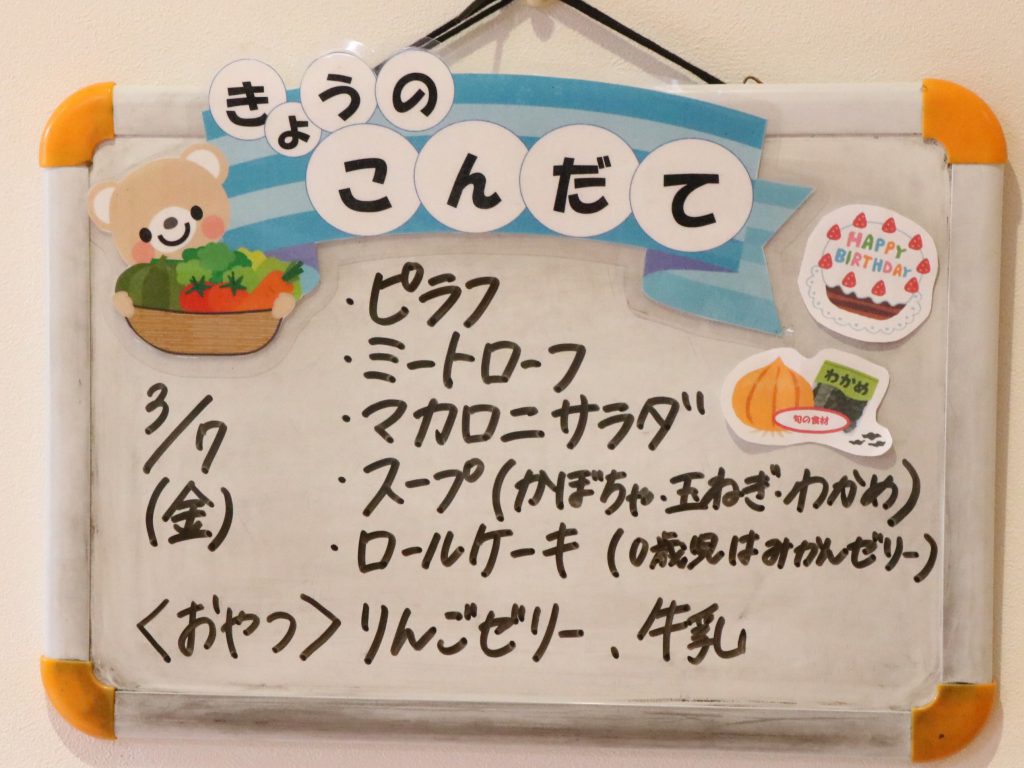 きょうの
こんだて
HAPPY
BIRTHDAY
・ピラフ
・ミートローフ
わかめ
旬の食材
3/7
(金)
・マカロニサラダ
・スープ(かぼちゃ・玉ねぎ・わかめ)
・ロールケーキ(0歳児はみかんゼリー)
〈おやつ〉りんごゼリー、牛乳